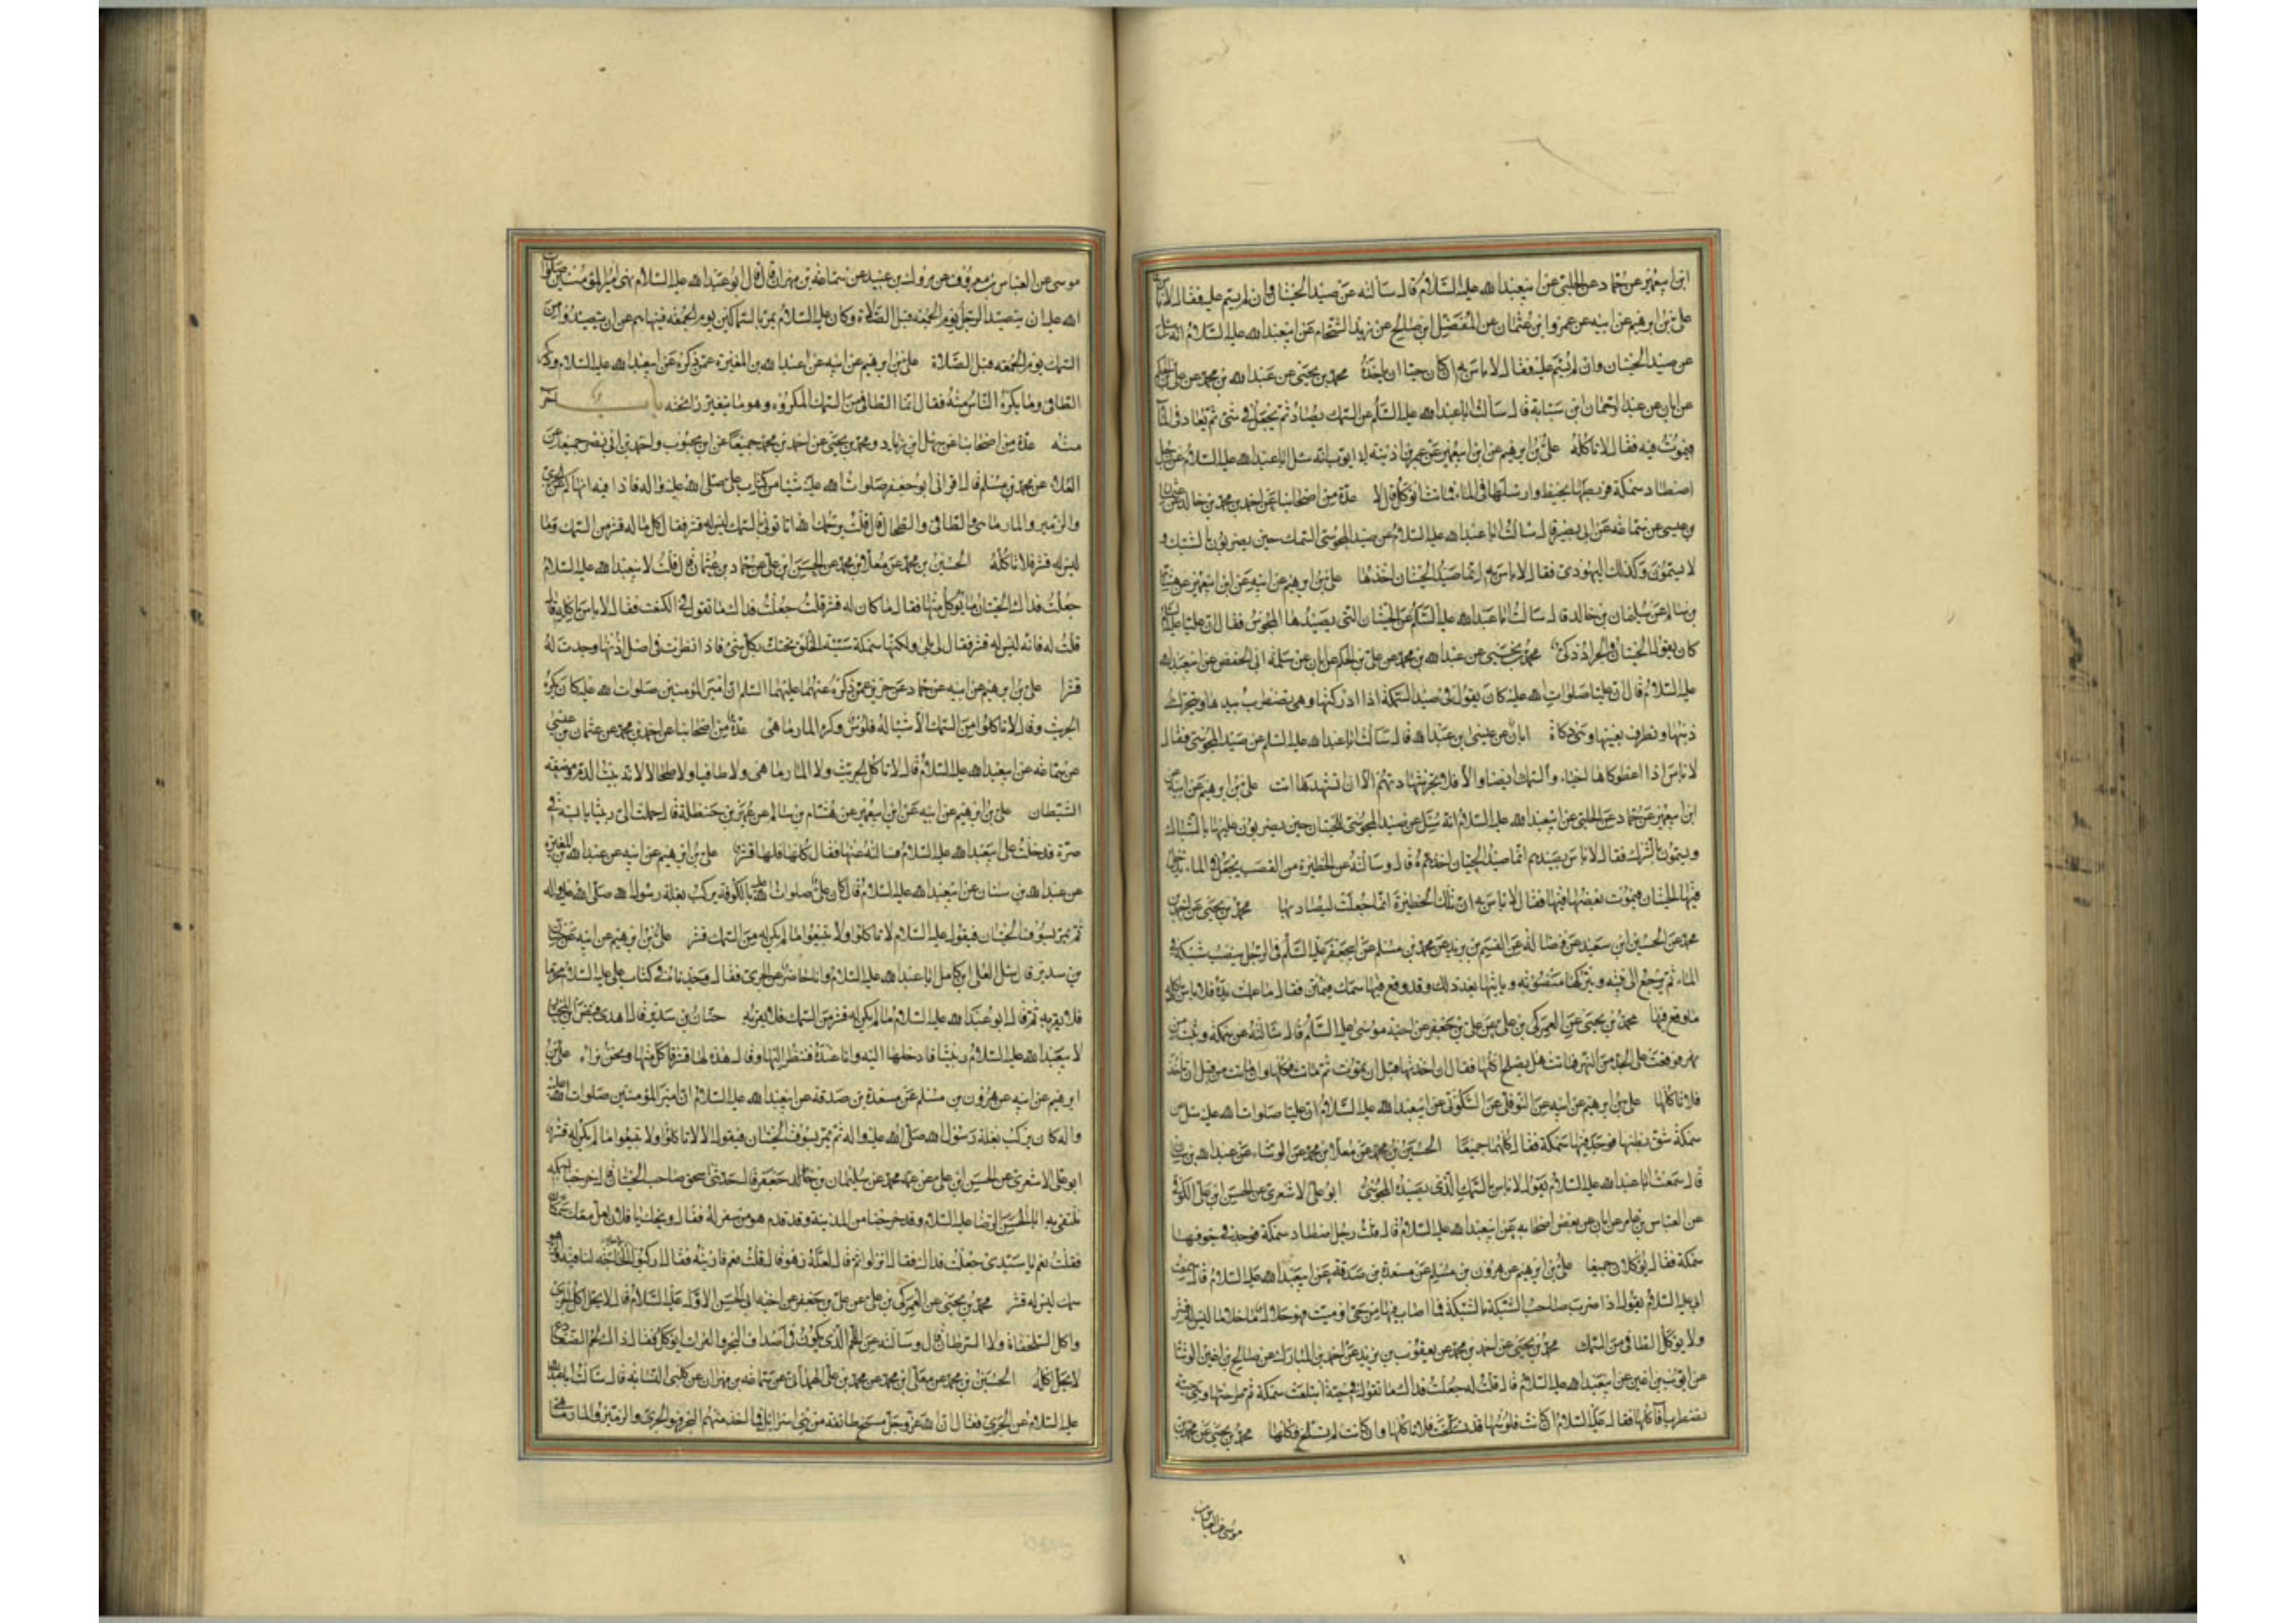 ابن ابي عمير عن حماد عن الحلبي عن ابي عبد الله عليه السلام قال سالته عن صيد الحيتان وان لم يسم عليه فقال لا باس
علي بن ابرهيم عن ابيه عن عمرو ابن عثمان عن المفضل ابن صالح عن زيد الشحام عن ابي عبد الله عليه السلام انه سئل
عن صيد الحيتان وان لم يسم عليه فقال لا باس به ان كان حيا ان ياخذه محمد بن يحيى عن عبد الله بن محمد عن علي بن الحكم
عن ابان عن عبد الرحمان ابن سيابة قال سالت ابا عبد الله عليه السلم عن السمك يصاد ثم يجعل في شئ ثم يعاد في الماء
فيموت فيه فقال لا تاكله علي بن ابرهيم عن ابن ابي عمير عن عمر بن اذينه ابي ايوب انه سئل ابا عبد الله عليه السلام عن رجل
اصطاد سمكة فربطها بخيط وارسلها في الماء فماتت اتوكل قال لا عدة من اصحابنا عن احمد بن محمد بن خالد عن عثمان
بن عيسى عن سماعه عن ابي بصير قال سالت ابا عبد الله عليه السلام عن صيد المجوسي السمك حين يضربون بالشبك و
لا يسمون وكذلك اليهودي فقال لا باس به انما صيد الحيتان اخذها علي بن ابرهيم عن ابيه عن ابن ابي عمير عن هشام
بن سالم عن سليمان بن خالد قال سالت ابا عبد الله عليه السلم عن الحيتان التي يصيدها المجوس فقال ان عليا عليه السلام
كان يقول الحيتان والجراد ذكي محمد بن يحيى عن عبد الله بن محمد عن علي بن الحكم عن ابان عن سلمة ابي الحفص عن ابي عبد الله
عليه السلام قال ان عليا صلوات الله عليه كان يقول في صيد السمكة اذا ادركتها وهي تضطرب بيدها وتحرك
ذنبها وتطرف بعينها وهي ذكاة ابان عن عيسى ابن عبد الله قال سالت ابا عبد الله عليه السلم عن صيد المجوسي فقال
لا باس اذا اعطوكاها احياء والسمك ايضا والا فلا تجز شهادتهم الا ان تشهدها انت علي بن ابرهيم عن ابيه عن
ابن ابي عمير عن حماد عن الحلبي عن ابي عبد الله عليه السلام انه سئل عن صيد المجوسي للحيتان حين يضربون عليها بالشباك
ويسمون بالشرك فقال لا باس بصيدهم انما صيد الحيتان اخذهم قال وسالته عن الحظيرة من القصب يجعل في الماء تدخل
فيها الحيتان فيموت بعضها فيها فقال لا باس به ان تلك الحظيرة انما جعلت ليصاد بها محمد بن يحيى عن احمد بن
محمد عن الحسين ابن سعيد عن فضالة عن القسم بن بريد عن محمد بن مسلم عن ابي جعفر عليه السلم في الرجل ينصب شبكة في
الماء ثم يرجع الى بيته ويتركها منصوبه وياتيها بعد ذلك وقد وقع فيها سمك فيمتن فقال ما عملت يده فلا باس باكل
ما وقع فيها محمد بن يحيى عن العمركي بن علي عن علي بن جعفر عن اخيه موسى عليه السلم قال سالته عن سمكة وثبت من
نهر فوقعت على الجد من النهر فماتت هل يصلح اكلها فقال ان اخذتها قبل ان يموت ثم ماتت فكلها وان ماتت من قبل ان تاخذ
فلا تاكلها علي بن ابرهيم عن ابيه عن النوفلي عن السكوني عن ابي عبد الله عليه السلام ان عليا صلوات الله عليه سئل عن
سمكة شق بطنها فوجد فيها سمكة فقال كلهما جميعا الحسين بن محمد عن معلا بن محمد عن الوشاء عن عبد الله بن سنان
قال سمعت ابا عبد الله عليه السلام يقول لا باس بالسمك الذي يصيد المجوسي ابو علي الاشعري عن الحسن ابن علي الكوفي
عن العباس بن عامر عن ابان عن بعض اصحابه عن ابي عبد الله عليه السلام قال قلت رجل اصطاد سمكة فوجد في جوفها
سمكة فقال يؤكلان جميعا علي بن ابرهيم عن هرون بن مسلم عن مسعدة بن صدقة عن ابي عبد الله عليه السلام قال سمعت
ابي عليه السلام يقول اذا ضرب صاحب الشبكة بالشبكة فما اصاب فيها من حي او ميت فهو حلال ما خلا ما ليس له قشر
ولا يؤكل الطافي من السمك محمد بن يحيى عن احمد بن محمد عن يعقوب بن يزيد عن احمد بن المبارك عن صالح بن اعين الوشا
عن ايوب بن اعين عن ابي عبد الله عليه السلام قال قلت له جعلت فداك ما تقول في حية ابتلعت سمكة ثم طرحتها وهي حية
تضطرب افآكلها فقال عليه السلام ان كانت فلوسها قد تسلخت فلا تاكلها وان كانت لم تسلخ فكلها محمد بن يحيى عن محمد بن
موسى عن العباس بن
موسى عن العباس بن معروف عن مروك بن عبيد عن سماعه بن مهران قال قال ابو عبد الله عليه السلام نهى امير المؤمنين صلوات
الله عليه ان يتصيد الرجل يوم الجمعه قبل الصلاة وكان عليه السلام يمر بالسماكين يوم الجمعه فينهاهم عن ان يتصيدوا من
السمك يوم الجمعه قبل الصلاة علي بن ابرهيم عن ابيه عن عبد الله بن المغيرة عمن ذكره عن ابي عبد الله عليه السلام وذكر
الطافي وما يكره الناس منه فقال انما الطافي من السمك المكروه وهو ما يتغير رائحته باب اخر
منه عدة من اصحابنا عن سهل ابن زياد ومحمد بن يحيى عن احمد بن محمد جميعا عن ابن محبوب واحمد بن ابي نصر جميعا عن
العلا عن محمد بن مسلم قال اقراني ابو جعفر صلوات الله عليه شيئا من كتاب علي صلى الله عليه واله فاذا فيه انهاكم عن الجري
والزمير والمارماهي والطافي والطحال قال قلت يرحمك الله انا نوتى بالسمك ليس له قشر فقال كل ما له قشر من السمك وما
ليس له قشر فلا تاكله الحسين بن محمد عن معلا بن محمد عن الحسن ابن علي عن حماد بن عثمان قال قلت لابي عبد الله عليه السلام
جعلت فداك الحيتان ما يؤكل منها فقال ما كان له قشر قلت جعلت فداك ما تقول في الكنعت فقال لا باس باكله قال
قلت له فانه ليس له قشر فقال لي بلى ولكنها سمكة سيئة الخلق تحتك بكل شئ فاذا نظرت في اصل اذنها وجدت له
قشرا علي بن ابرهيم عن ابيه عن حماد عن حريز عمن ذكره عنهما عليهما السلم ان امير المؤمنين صلوات الله عليه كان يكره
الجريث وقال لا تاكلوا من السمك الا شيئا له فلوس وكره المارماهي عدة من اصحابنا عن احمد بن محمد عن عثمان بن عيسى
عن سماعه عن ابي عبد الله عليه السلام قال لا تاكل الجريث ولا المارماهي ولا طافيا ولا طحالا لانه بيت الدم ومضغه
الشيطان علي بن ابرهيم عن ابيه عن ابن ابي عمير عن هشام بن سالم عن عمر بن حنظلة قال حملت الي ربيثا يابسة في
صرة فدخلت على ابي عبد الله عليه السلام فسالته عنها فقال كلها فلها قشر علي بن ابرهيم عن ابيه عن عبد الله بن المغيرة
عن عبد الله بن سنان عن ابي عبد الله عليه السلام قال كان علي صلوات الله عليه بالكوفه يركب بغلة رسول الله صلى الله عليه واله
ثم يمر بسوق الحيتان فيقول عليه السلام لا تاكلوا ولا تبيعوا ما لم يكن له من السمك قشر علي بن ابرهيم عن ابيه عن حنان
بن سدير قال سئل العلا ابن كامل ابا عبد الله عليه السلام وانا حاضر عن الجري فقال وجدناه في كتاب علي عليه السلام محرما
فلا تقربه ثم قال ابو عبد الله عليه السلام ما لم يكن له قشر من السمك فلا تقربه حنان بن سدير قال اهدى فيض ابن المختار
لابي عبد الله عليه السلام ربيثا فادخلها اليه وانا عنده فنظر اليها وقال هذه لها قشر فاكل منها ونحن نراه علي بن
ابرهيم عن ابيه عن هرون بن مسلم عن مسعدة بن صدقه عن ابي عبد الله عليه السلام ان امير المؤمنين صلوات الله عليه
واله كان يركب بغلة رسول الله صلى الله عليه واله ثم يمر بسوق الحيتان فيقول الا لا تاكلوا ولا تبيعوا ما لم يكن له قشر
ابو علي الاشعري عن الحسن ابن علي عن عمه محمد عن سليمان بن جعفر قال حدثني اسحق صاحب الحيتان قال خرجنا بسمك
نتلقى به ابا الحسن الرضا عليه السلام وقد خرجنا من المدينة وقد قدم هو من سفر له فقال ويحك يا فلان لعل معك سمكا
فقلت نعم يا سيدي جعلت فداك فقال انزلوا ثم قال لعله زهو قال قلت نعم فاريته فقال اركبوا لا حاجه لنا فيه والزهو
سمك ليس له قشر محمد بن يحيى عن العمركي بن علي عن علي بن جعفر عن اخيه ابي الحسن الاول عليه السلام قال لا يحل اكل الجري
واكل السلحفاة ولا السرطان قال وسالته عن اللحم الذي يكون في اصداف البحر والفرات ايؤكل فقال ذاك لحم الضفادع
لا يحل اكله الحسين بن محمد عن معلى ابن محمد عن محمد بن علي الهمداني عن سماعه بن مهران عن كلبي النسابه قال سالت ابا عبد الله
عليه السلام عن الجري فقال ان الله عز وجل مسخ طائفه من بني اسرائيل فما اخذ منهم البحر فهو الجري والزمير والمارماهي